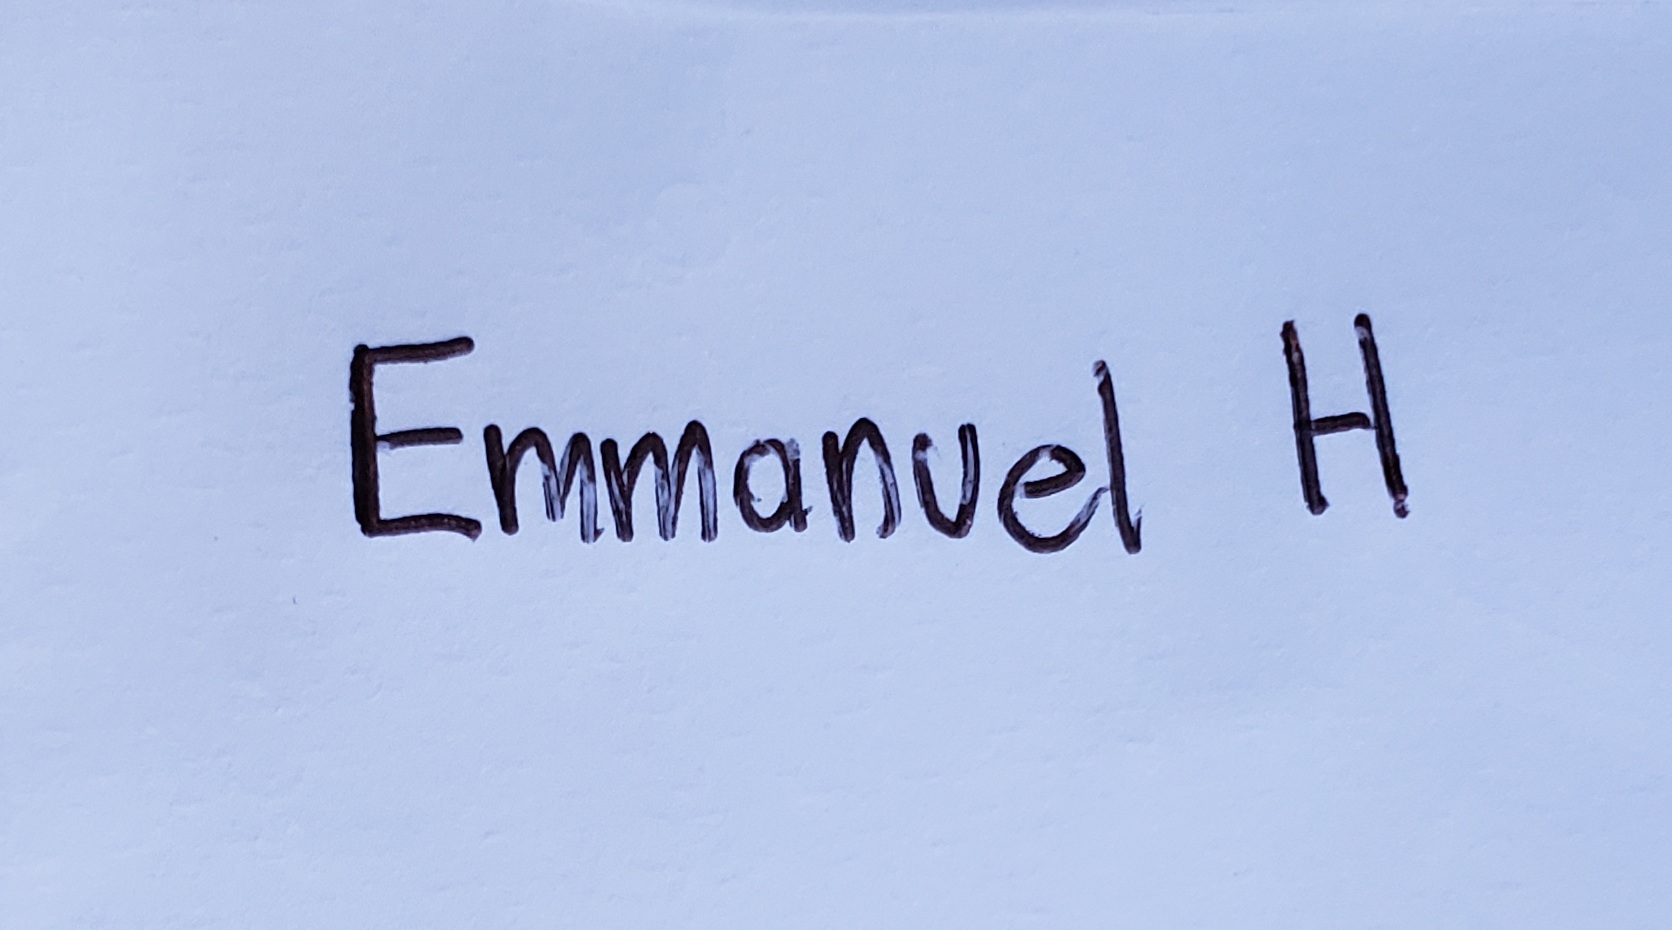 Emmanuel H